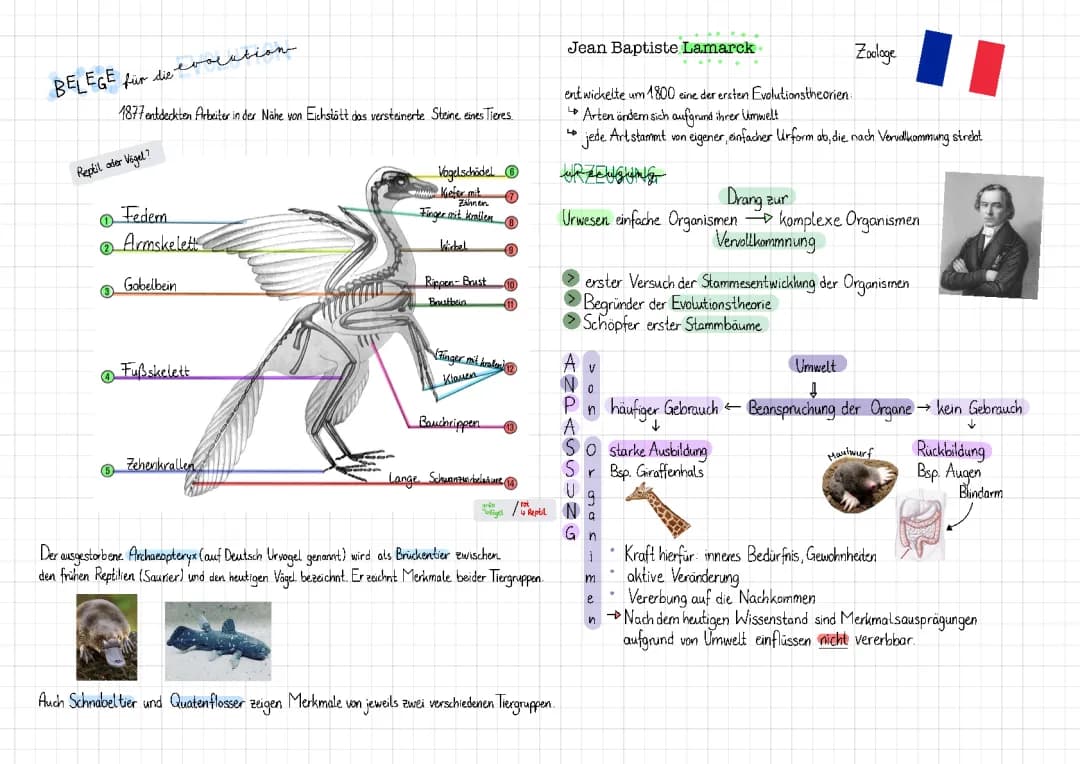 BELEGE für die evolution
EVOLUTION
1877 entdeckten Arbeiter in der Nähe von Eichstött das versteinerte Steine eines Tieres.
Reptil oder Vögel?
1 Federn
2 Armskelett
3 Gabelbein
4 Fußskelett
5 Zehenkrallen
Vogelschädel 6
Kiefer mit Zähnen 7
Finger mit Krallen 8
Wirbel 9
Rippen-Brust 10
Brustbein 11
(Finger mit krallen) 12
Klauen
Bauchrippen 13
Lange 14
grün
↳ Vögel / rot
↳ Reptil
Der ausgestorbene Archaeopteryx (auf Deutsch Urvogel genannt) wird als Brückentier zwischen
den frühen Reptilien (Saurier) und den heutigen Vögel bezeichnt. Er zeichnt Merkmale beider Tiergruppen.
Auch Schnabeltier und Quatenflosser zeigen Merkmale von jeweils zwei verschiedenen Tiergruppen.
Jean Baptiste Lamarck
Zoologe
entwickelte um 1800 eine der ersten Evolutionstheorien.
↳ Arten ändern sich aufgrund ihrer Umwelt
↳ jede Art stammt von eigener, einfacher Urform ab, die nach Vervollkommung strebt
URZEUGUNG
Drang zur
Urwesen einfache Organismen → komplexe Organismen
Vervollkommnung
> erster Versuch der Stammesentwicklung der Organismen
> Begründer der Evolutionstheorie
> Schöpfer erster Stammbäume
ANPASSUNG
von Organimen
Umwelt
häufiger Gebrauch ← Beanspruchung der Organe → kein Gebrauch
starke Ausbildung
Bsp. Giraffenhals
Maulwurf
Rückbildung
Bsp. Augen
Blindarm
• Kraft hierfür: inneres Bedürfnis, Gewohnheiten
• aktive Veränderung
• Vererbung auf die Nachkommen
→ Nach dem heutigen Wissenstand sind Merkmalsausprägungen
aufgrund von Umwelt einflüssen nicht vererbbar.